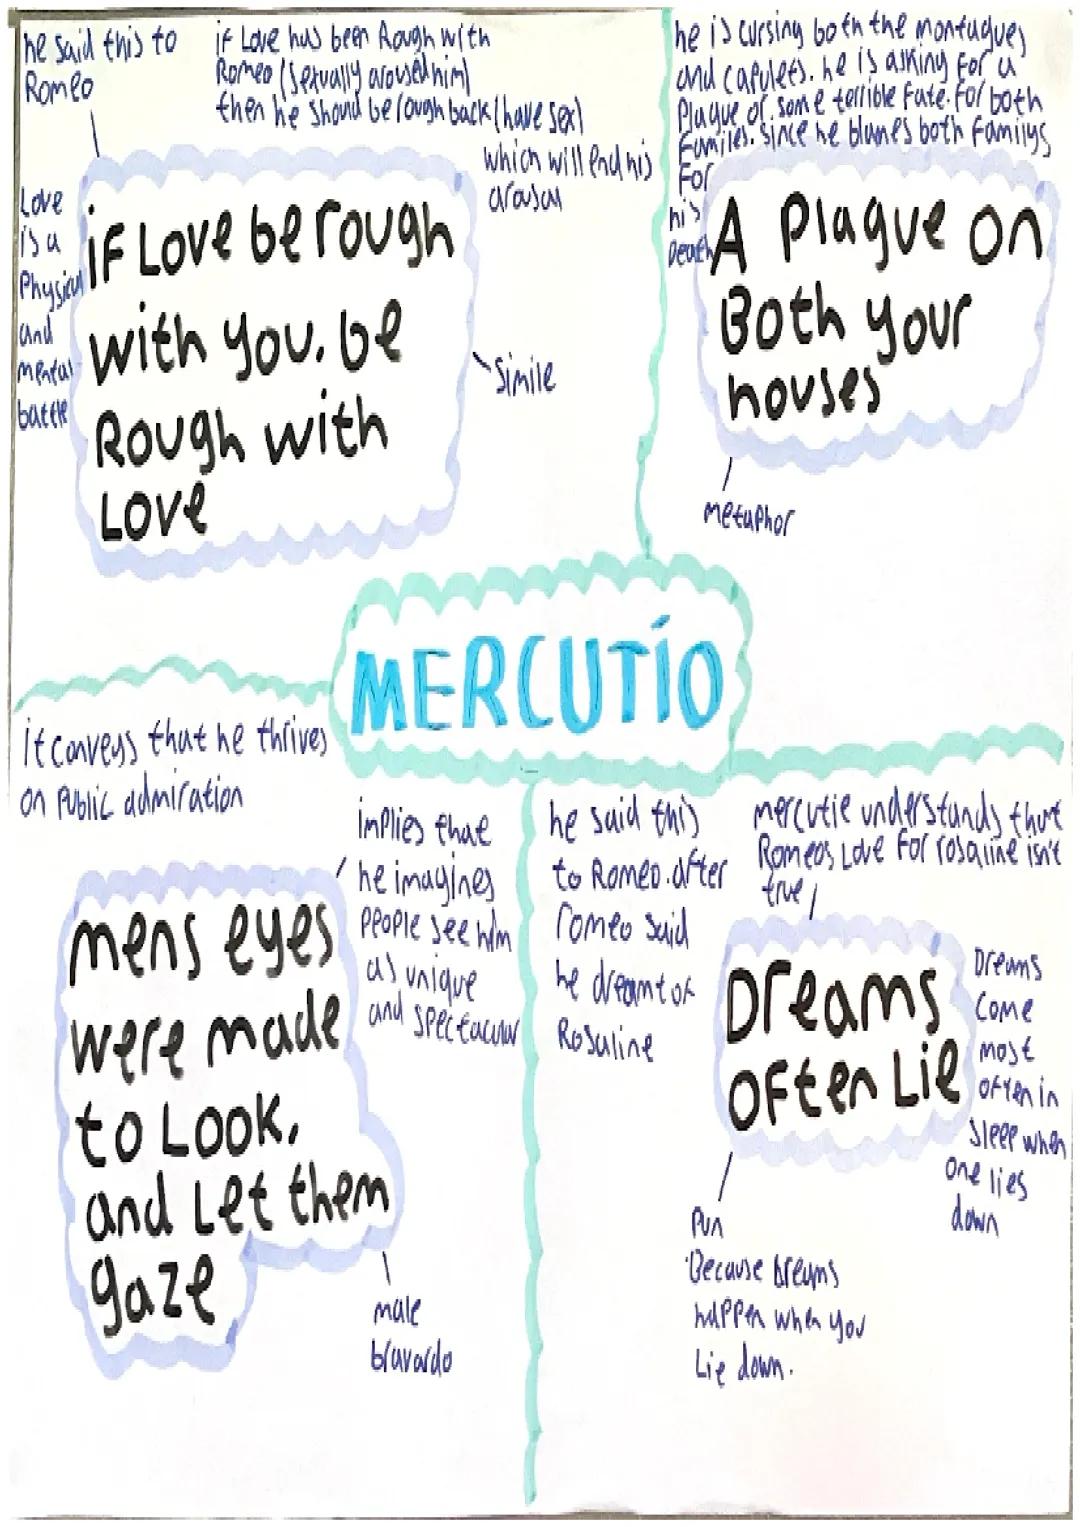 he said this to
Romeo
if Love has been Rough with
Romeo (Sexually aroused him)
then he should be rough back (have sex)
which will end his
arousal
Love
is a
Physical
and
mental
battle
iF Love be rough
with you. be
Rough with
Love
Simile
he is cursing both the montagues
and capulets. he is asking For a
Plague or some terrible Fate. For both
Familes. Since he blames both Familys
For
his
Death
A Plague on
Both your
houses
metaphor
MERCUTIO
it conveys that he thrives
on Public admiration
implies that
he imagines
People see him
as unique
and spectacular
mens eyes
were made
to Look,
and Let them
gaze
male
bravardo
he said this
to Romeo. after
romeo said
he dreamt of
Rosaline
mercutie understands that
Romeos Love For rosaline isn't
true
Dreams
oFten Lie
Dreams
Come
most
often in
sleep when
one lies
down
Pun
Because Dreams
happen when you
Lie down.